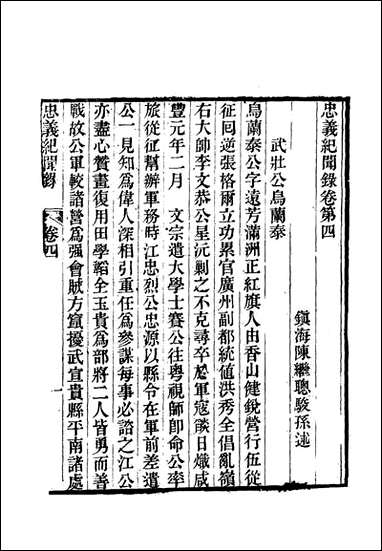 忠義紀聞錄卷第四
鎮海陳繼聰駿孫述
武壯公烏蘭泰
烏蘭泰公字遠芳滿洲正紅旗人由香山健銳營行伍從
征回逆張格爾立功累官廣州副都統值洪秀全倡亂嶺
右大帥李文恭公星沅剿之不克尋卒於軍寇燄日熾咸
豐元年二月 文宗遣大學士賽公往粵視師卽命公率
旅從征幫辦軍務時江忠烈公忠源以縣令在軍前差遣
公一見知為偉人深相引重任為參謀每事必諮之江公
亦盡心贊畫復用田學韜全玉貴為部將二人皆勇而善
戰故公軍較諸營為强會賊方竄擾武宣貴縣平南諸處
忠義紀聞錄 卷四